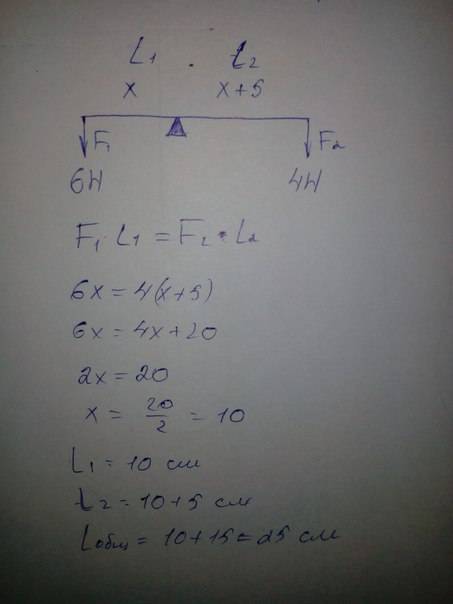 L₁ . L₂
x x+5
F₁ F₂
6Н 4Н
F₁ · L₁ = F₂ • L₂
6x = 4(x+5)
6x = 4x+20
2x = 20
x = 20/2 = 10
L₁ = 10 см
L₂ = 10+5 см
Lобщ = 10+15=25 см